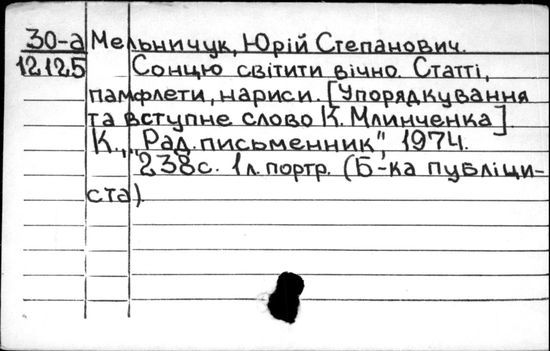 30-а Мельничук, Юрій Степанович.
12125 Сонцю світити вічно. Статті,
памфлети, нариси. [Упорядкування
та вступне слово К. Млинченка]
К., „Рад. письменник", 1974.
238с. 1л. портр. (Б-ка публіци-
ста).